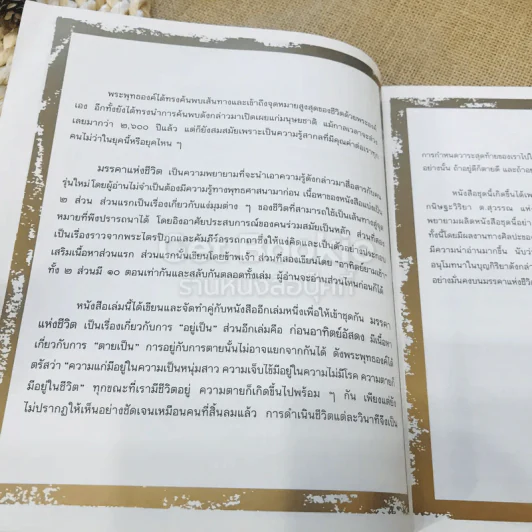 พระพุทธองค์ได้ทรงค้นพบเส้นทางและเข้าถึงจุดหมายสูงสุดของชีวิตด้วยพระองค์
เอง อีกทั้งยังได้ทรงนำการค้นพบดังกล่าวมาเปิดเผยแก่มนุษยชาติ แม้กาลเวลาจะล่วง
เลยมากว่า ๒,๖๐๐ ปีแล้ว แต่ก็ยังสมสมัยเพราะเป็นความรู้สากลที่มีคุณค่าต่อเราทุก
คนไม่ว่าในยุคนี้หรือยุคไหน ๆ
มรรคาแห่งชีวิต เป็นความพยายามที่จะนำเอาความรู้ดังกล่าวมาสื่อสารกับคน
รุ่นใหม่โดยผู้อ่านไม่จำเป็นต้องมีความรู้ทางพุทธศาสนามาก่อน เนื้อหาของหนังสือแบ่งเป็น
๒ ส่วน ส่วนแรกเป็นเรื่องเกี่ยวกับแง่มุมต่าง ๆ ของชีวิตที่สามารถใช้เป็นเส้นทางสู่จุด
หมายที่พึงปรารถนาได้ โดยอิงอาศัยประสบการณ์ของคนร่วมสมัยเป็นหลัก ส่วนที่สอง
เป็นเรื่องราวจากพระไตรปิฎกและคัมภีร์อรรถกถาซึ่งให้แง่คิดและเป็นตัวอย่างประกอบ
เสริมเนื้อหาส่วนแรก ส่วนแรกนั้นเขียนโดยข้าพเจ้า ส่วนที่สองเขียนโดย "อาทิตย์ยามเช้า"
ทั้ง ๒ ส่วนมี ๑๐ ตอนเท่ากันและสลับกันตลอดทั้งเล่ม ผู้อ่านจะอ่านส่วนไหนก่อนก็ได้
หนังสือเล่มนี้ได้เขียนและจัดทำคู่กับหนังสืออีกเล่มหนึ่งเพื่อให้เข้าชุดกัน มรรคา
แห่งชีวิต เป็นเรื่องเกี่ยวกับการ "อยู่เป็น" ส่วนอีกเล่มคือ ก่อนอาทิตย์อัสดง มีเนื้อหา
เกี่ยวกับการ "ตายเป็น" การอยู่กับการตายนั้นไม่อาจแยกจากกันได้ ดังพระพุทธองค์ได้
ตรัสว่า "ความแก่มีอยู่ในความเป็นหนุ่มสาว ความเจ็บไข้มีอยู่ในความไม่มีโรค ความตายก็
มีอยู่ในชีวิต" ทุกขณะที่เรามีชีวิตอยู่ ความตายก็เกิดขึ้นไปพร้อม ๆ กัน เพียงแต่ยัง
ไม่ปรากฏให้เห็นอย่างชัดเจนเหมือนคนที่สิ้นลมแล้ว การดำเนินชีวิตแต่ละวินาทีจึงเป็น
การกำหนดวาระสุดท้ายของเราไป
อย่างนั้น ถ้าอยู่ดีก็ตายดี และถ้า
หนังสือชุดนี้เกิดขึ้นได้
กนิษฐะวิริยา ต.สุวรรณ
พยายามผลิตหนังสือชุดนี้
ทั้งนี้โดยมีผลงานทางศิลปะของ
มีความน่าอ่านมากขึ้น นับว่า
อนุโมทนาในบุญกิริยาดังกล่าว
อย่างมั่นคงบนมรรคาแห่งชีวิต
ร้านหนังสืออุบูคที่